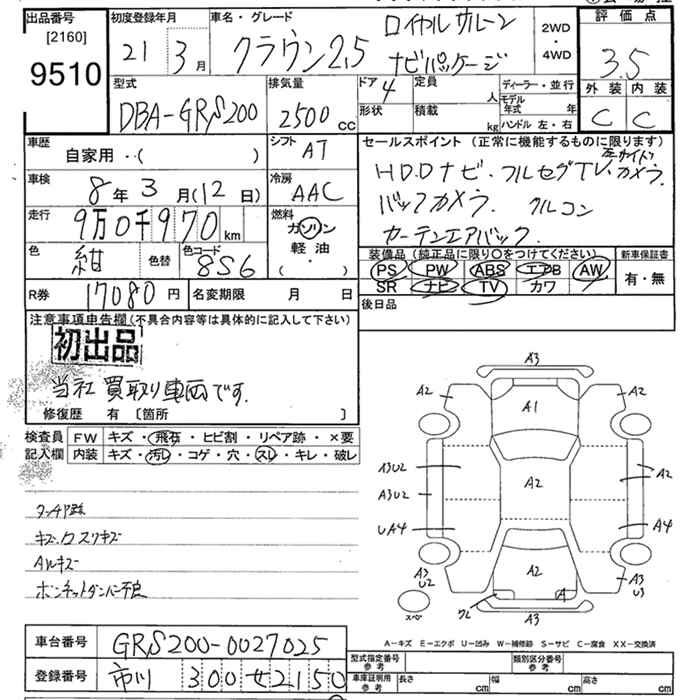 出品番号 初度登録年月 車名・グレード ロイヤルサルーン 評価点
[2160] 21年 3月 クラウン2.5 ナビパッケージ 2WD 3.5
9510 4WD
外装 内装
型式 排気量 ドア 定員 ディーラー・並行
DBA-GRS200 2500cc 4 人 モデル年式 年 C C
形状 積載 kg ハンドル 左・右
車歴 自家用・( ) シフト AT セールスポイント(正常に機能するものに限ります)
車検 8年3月(12日) 冷房 AAC HDDナビ・フルセグTV カメラ
走行 9万0千970km 燃料 ガソリン バックカメラ クルコン
軽油 カーテンエアバック
色 紺 色替 色コード 8S6 ・( ) 装備品(純正品に限り○をつけてください) 新車保証書
PS PW ABS エアB AW 有・無
R券 17080円 名変期限 月 日 SR ナビ TV カワ
後日品
注意事項申告欄(不具合内容等は具体的に記入して下さい)
初出品
当社買取り車両です。
修復歴 有 〔箇所 〕
検査員 FW キズ・飛石・ヒビ割・リペア跡・×要
記入欄 内装 キズ・汚レ・コゲ・穴・スレ・キレ・破レ
タッチア跡
キズ、ロスリキズ
Aルキズ
ボンネットダンパー不良
A3
A2 A1 A2
A3U2 A2 A2
A3U2
UA4 A4
A3 U2 A2 A A3 U3
スペア クレ A3
A-キズ E-エクボ U-凹み W-補修跡 S-サビ C-腐食 XX-交換済
車台番号 GRS200-0027025 型式指定番号 参考 類別区分番号 参考
登録番号 市川 300 せ 2150 車庫証明用 参考 長さ cm 幅 cm 高さ cm